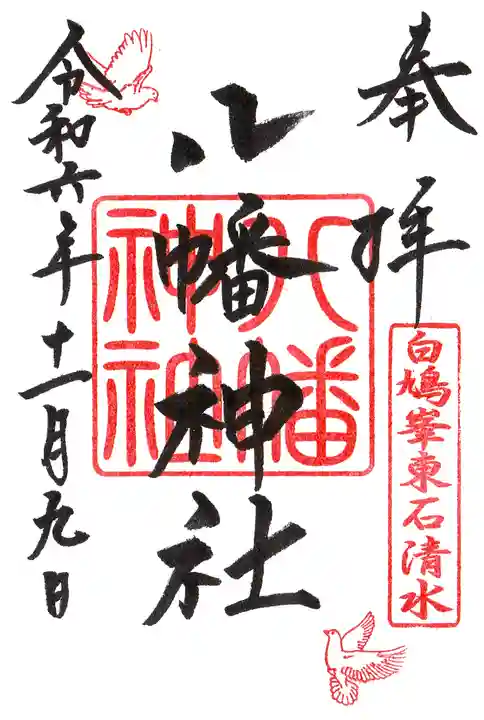 奉拝
白鳩峯東石清水
八幡神社
八幡神社
令和六年十一月九日